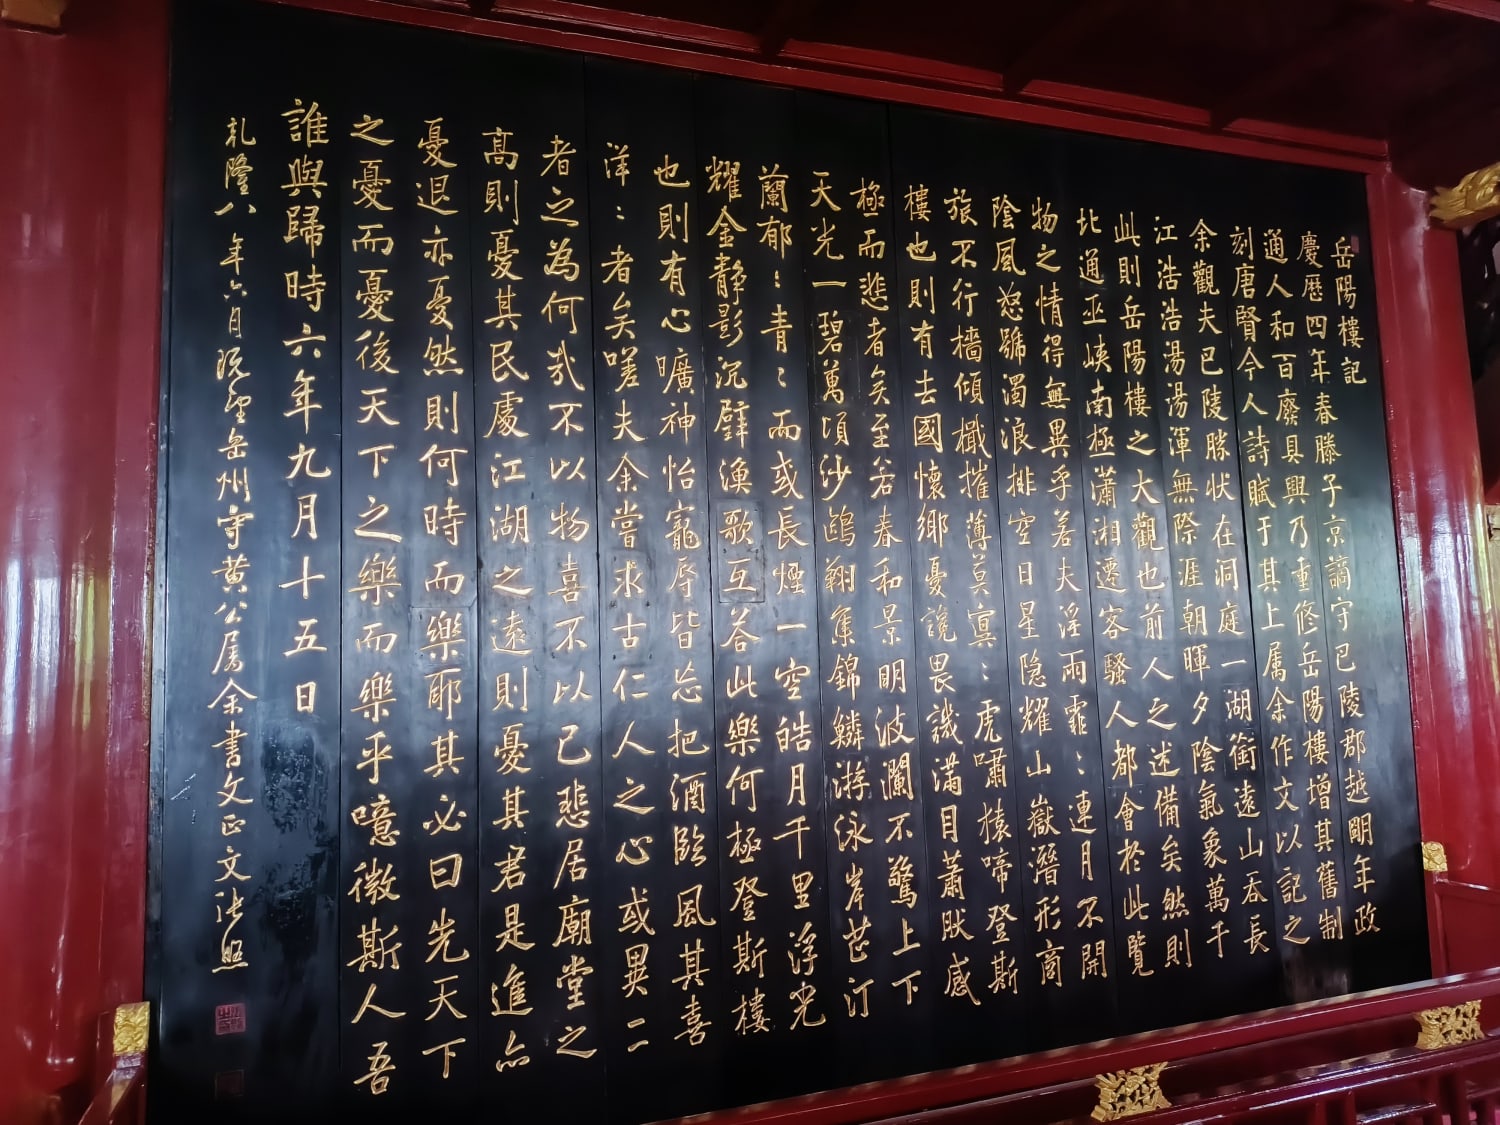 岳陽樓記
慶歷四年春滕子京謫守巴陵郡越明年政
通人和百廢具興乃重修岳陽樓增其舊制
刻唐賢今人詩賦于其上属余作文以記之
余觀夫巴陵勝状在洞庭一湖銜遠山吞長
江浩浩湯湯渾無際涯朝暉夕陰氣象萬千
此則岳陽樓之大觀也前人之述備矣然則
北通巫峽南極瀟湘遷客騷人都會於此覽
物之情得無異乎若夫淫雨霏〻連月不開
陰風怒號濁浪排空日星隠耀山嶽潛形商
旅不行檣傾檝摧薄莫冥〻虎嘯猿啼登斯
樓也則有去國懷鄉憂讒畏譏滿目蕭然感
極而悲者矣至若春和景明波瀾不驚上下
天光一碧萬頃沙鷗翔集錦鱗游泳岸芷汀
蘭郁〻青〻而或長煙一空皓月千里浮光
耀金静影沉璧漁歌互答此樂何極登斯樓
也則有心曠神怡寵辱皆忘把酒臨風其喜
洋〻者矣嗟夫余嘗求古仁人之心或異二
者之為何哉不以物喜不以己悲居廟堂之
高則憂其民處江湖之遠則憂其君是進亦
憂退亦憂然則何時而樂耶其必曰先天下
之憂而憂後天下之樂而樂乎噫微斯人吾
誰與歸時六年九月十五日
乹隆八年六月既望岳州守黄公属余書文正文張照